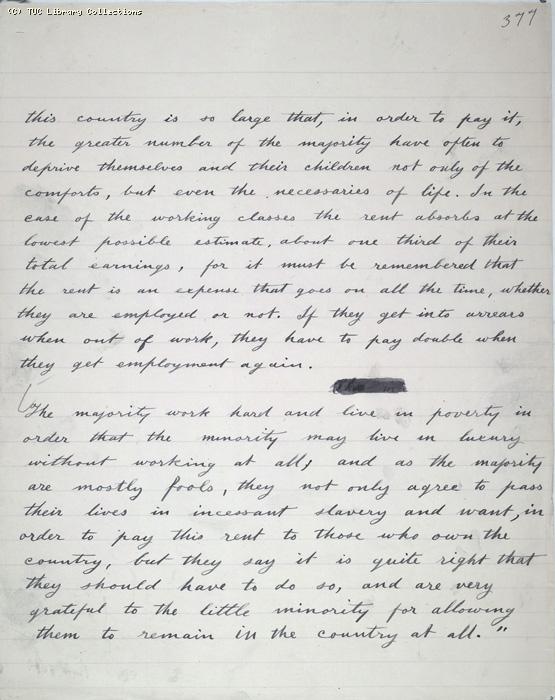 (C) TUC Library Collections
377
this country is so large that, in order to pay it,
the greater number of the majority have often to
deprive themselves and their children not only of the
comforts, but even the necessaries of life. In the
case of the working classes the rent absorbs at the
lowest possible estimate, about one third of their
total earnings, for it must be remembered that
the rent is an expense that goes on all the time, whether
they are employed or not. If they get into arrears
when out of work, they have to pay double when
they get employment again.
The majority work hard and live in poverty in
order that the minority may live in luxury
without working at all; and as the majority
are mostly fools, they not only agree to pass
their lives in incessant slavery and want, in
order to pay this rent to those who own the
country, but they say it is quite right that
they should have to do so, and are very
grateful to the little minority for allowing
them to remain in the country at all."